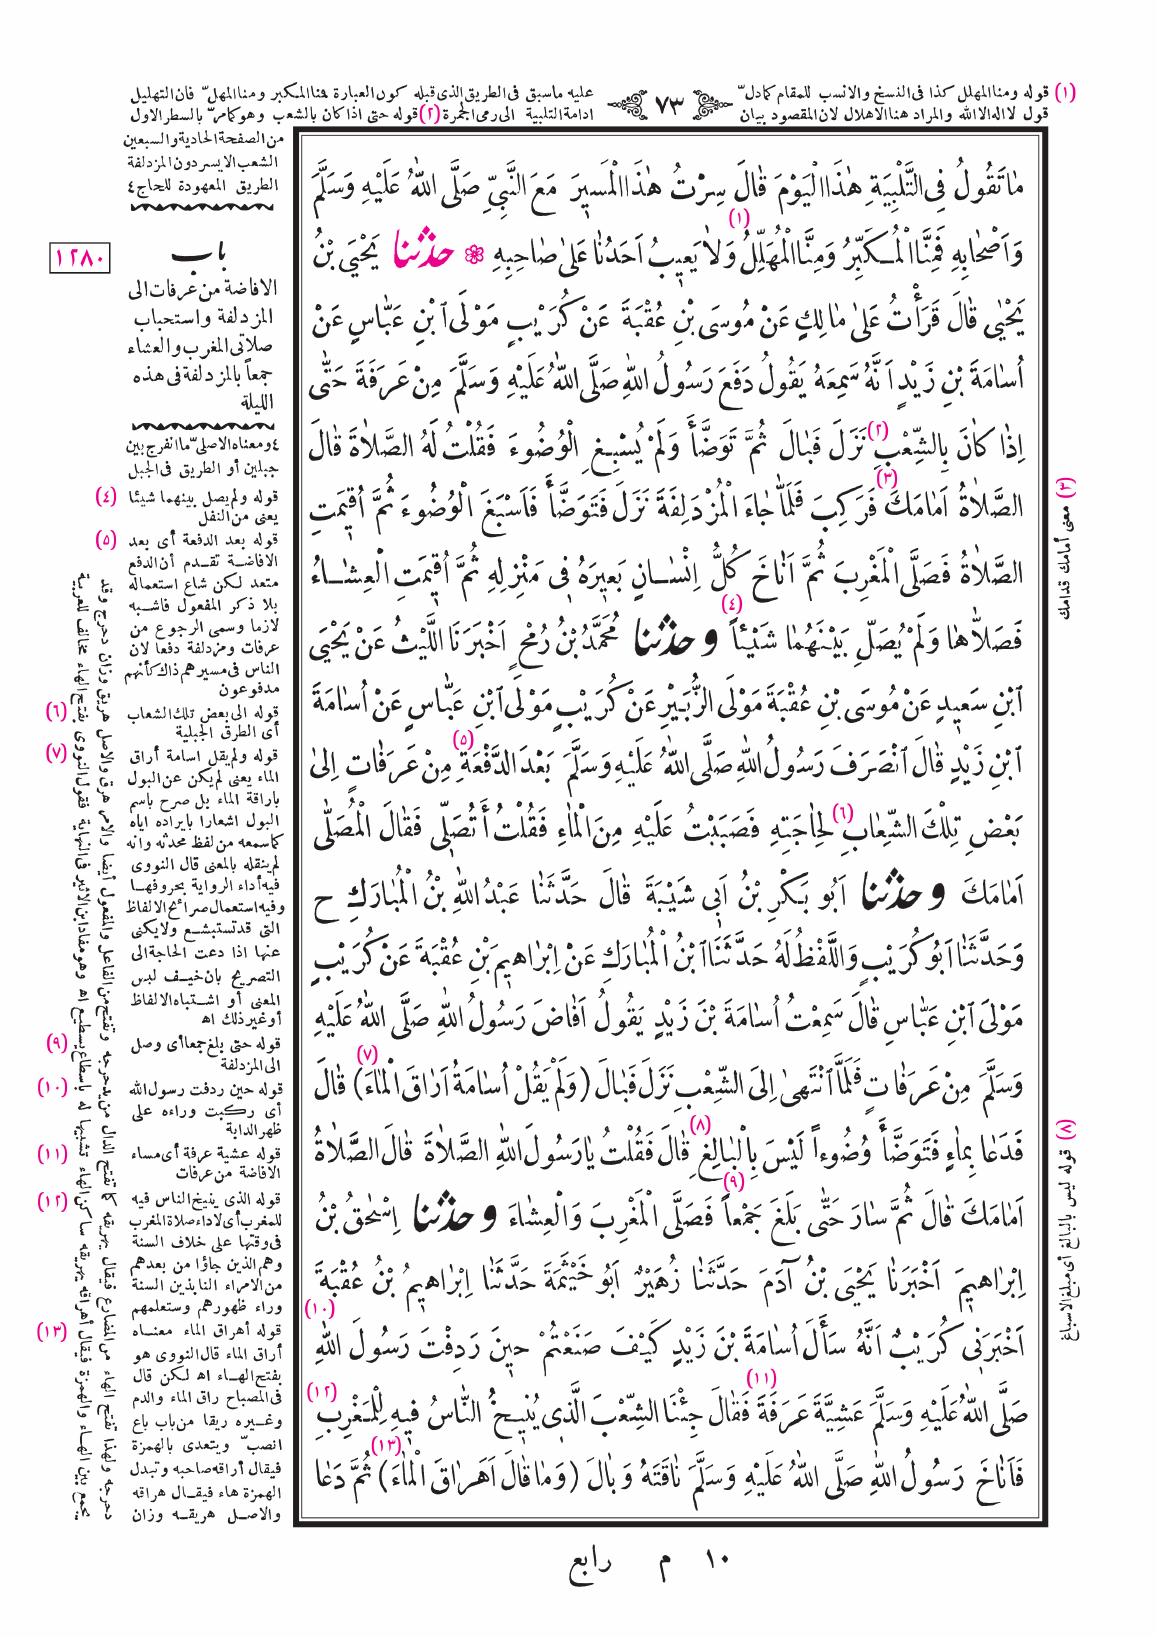 (١) قوله ومنا المهلل كذا فى النسخ والانسب للمقام كما دلّ
قول لا اله الا الله والمراد هنا الاهلال لان المقصود بيان
٧٣
عليه ما سبق فى الطريق الذى قبله كون العبارة هنا المكبر ومنا المهلّ فان التهليل
ادامة التلبية الى رمى الجمرة (٢) قوله حتى اذا كان بالشعب وهو كما مرّ بالسطر الاول
من الصفحة الحادية والسبعين
الشعب الايسر دون المزدلفة
الطريق المعهودة للحاج ٤
مَا تَقُولُ فِى التَّلْبِيَةِ هٰذَا الْيَوْمَ قَالَ سِرْتُ هٰذَا الْمَسِيرَ مَعَ النَّبِىِّ صَلَّى اللهُ عَلَيْهِ وَسَلَّمَ
وَاَصْحَابِهِ فَمِنَّا الْمُكَبِّرُ وَمِنَّا الْمُهَلِّلُ (١) وَلَا يَعِيبُ اَحَدُنَا عَلىٰ صَاحِبِهِ ❀ حدثنا يَحْيَى بْنُ
يَحْيٰى قَالَ قَرَأْتُ عَلىٰ مَالِكٍ عَنْ مُوسَى بْنِ عُقْبَةَ عَنْ كُرَيْبٍ مَوْلَى ٱبْنِ عَبَّاسٍ عَنْ
اُسَامَةَ بْنِ زَيْدٍ اَنَّهُ سَمِعَهُ يَقُولُ دَفَعَ رَسُولُ اللهِ صَلَّى اللهُ عَلَيْهِ وَسَلَّمَ مِنْ عَرَفَةَ حَتّٰى
اِذَا كَانَ بِالشِّعْبِ (٢) نَزَلَ فَبَالَ ثُمَّ تَوَضَّأَ وَلَمْ يُسْبِغِ الْوُضُوءَ فَقُلْتُ لَهُ الصَّلَاةَ قَالَ
الصَّلَاةُ اَمَامَكَ (٣) فَرَكِبَ فَلَمَّا جَاءَ الْمُزْدَلِفَةَ نَزَلَ فَتَوَضَّأَ فَاَسْبَغَ الْوُضُوءَ ثُمَّ اُقِيمَتِ
الصَّلَاةُ فَصَلَّى الْمَغْرِبَ ثُمَّ اَنَاخَ كُلُّ اِنْسَانٍ بَعِيرَهُ فِى مَنْزِلِهِ ثُمَّ اُقِيمَتِ الْعِشَاءُ
فَصَلَّاهَا وَلَمْ يُصَلِّ بَيْنَهُمَا شَيْئاً (٤) و حدثنا مُحَمَّدُ بْنُ رُمْحٍ اَخْبَرَنَا اللَّيْثُ عَنْ يَحْيَى
ٱبْنِ سَعِيدٍ عَنْ مُوسَى بْنِ عُقْبَةَ مَوْلَى الزُّبَيْرِ عَنْ كُرَيْبٍ مَوْلَى ٱبْنِ عَبَّاسٍ عَنْ اُسَامَةَ
ٱبْنِ زَيْدٍ قَالَ ٱنْصَرَفَ رَسُولُ اللهِ صَلَّى اللهُ عَلَيْهِ وَسَلَّمَ بَعْدَ الدَّفْعَةِ (٥) مِنْ عَرَفَاتٍ اِلىٰ
بَعْضِ تِلْكَ الشِّعَابِ (٦) لِحَاجَتِهِ فَصَبَبْتُ عَلَيْهِ مِنَ الْمَاءِ فَقُلْتُ أَتُصَلِّى فَقَالَ الْمُصَلَّى
اَمَامَكَ و حدثنا اَبُو بَكْرِ بْنُ اَبِى شَيْبَةَ قَالَ حَدَّثَنَا عَبْدُ اللهِ بْنُ الْمُبَارَكِ ح
وَحَدَّثَنَا اَبُو كُرَيْبٍ وَاللَّفْظُ لَهُ حَدَّثَنَا ٱبْنُ الْمُبَارَكِ عَنْ اِبْرَاهِيمَ بْنِ عُقْبَةَ عَنْ كُرَيْبٍ
مَوْلَى ٱبْنِ عَبَّاسٍ قَالَ سَمِعْتُ اُسَامَةَ بْنَ زَيْدٍ يَقُولُ اَفَاضَ رَسُولُ اللهِ صَلَّى اللهُ عَلَيْهِ
وَسَلَّمَ مِنْ عَرَفَاتٍ فَلَمَّا ٱنْتَهىٰ اِلَى الشِّعْبِ نَزَلَ فَبَالَ (وَلَمْ يَقُلْ اُسَامَةُ اَرَاقَ الْمَاءَ) (٧) قَالَ
فَدَعَا بِمَاءٍ فَتَوَضَّأَ وُضُوءاً لَيْسَ بِالْبَالِغِ (٨) قَالَ فَقُلْتُ يَا رَسُولَ اللهِ الصَّلَاةَ قَالَ الصَّلَاةُ
اَمَامَكَ قَالَ ثُمَّ سَارَ حَتّٰى بَلَغَ جَمْعاً (٩) فَصَلَّى الْمَغْرِبَ وَالْعِشَاءَ و حدثنا اِسْحٰقُ بْنُ
اِبْرَاهِيمَ اَخْبَرَنَا يَحْيَى بْنُ آدَمَ حَدَّثَنَا زُهَيْرٌ اَبُو خَيْثَمَةَ حَدَّثَنَا اِبْرَاهِيمُ بْنُ عُقْبَةَ
اَخْبَرَنِى كُرَيْبٌ اَنَّهُ سَأَلَ اُسَامَةَ بْنَ زَيْدٍ كَيْفَ صَنَعْتُمْ حِينَ رَدِفْتَ رَسُولَ اللهِ (١٠)
صَلَّى اللهُ عَلَيْهِ وَسَلَّمَ عَشِيَّةَ عَرَفَةَ (١١) فَقَالَ جِئْنَا الشِّعْبَ الَّذِى يُنِيخُ النَّاسُ فِيهِ لِلْمَغْرِبِ (١٢)
فَاَنَاخَ رَسُولُ اللهِ صَلَّى اللهُ عَلَيْهِ وَسَلَّمَ نَاقَتَهُ وَبَالَ (وَمَا قَالَ اَهَرَاقَ الْمَاءَ) (١٣) ثُمَّ دَعَا
١٢٨٠
باب
الافاضة من عرفات الى
المزدلفة واستحباب
صلاتى المغرب والعشاء
جمعاً بالمزدلفة فى هذه
الليلة
٤ ومعناه الاصلىّ ما انفرج بين
جبلين أو الطريق فى الجبل
(٤) قوله ولم يصل بينهما شيئا
يعنى من النفل
(٥) قوله بعد الدفعة أى بعد
الافاضة تقدم أن الدفع
متعد لكن شاع استعماله
بلا ذكر المفعول فاشبه
لازما وسمى الرجوع من
عرفات ومزدلفة دفعا لان
الناس فى مسيرهم ذاك كأنهم
مدفوعون
(٦) قوله الى بعض تلك الشعاب
أى الطرق الجبلية
(٧) قوله ولم يقل اسامة أراق
الماء يعنى لم يكن عن البول
باراقة الماء بل صرح باسم
البول اشعارا بايراده اياه
كما سمعه من لفظ محدثه وانه
لم ينقله بالمعنى قال النووى
فيه أداء الرواية بحروفها
وفيه استعمال صرائح الالفاظ
التى قد تستبشع ولا يكنى
عنها اذا دعت الحاجة الى
التصريح بان خيف لبس
المعنى أو اشتباه الالفاظ
أو غير ذلك اه
(٩) قوله حتى بلغ جمعا أى وصل
الى المزدلفة
(١٠) قوله حين ردفت رسول الله
أى ركبت وراءه على
ظهر الدابة
(١١) قوله عشية عرفة أى مساء
الافاضة من عرفات
(١٢) قوله الذى ينيخ الناس فيه
للمغرب أى لاداء صلاة المغرب
فى وقتها على خلاف السنة
وهم الذين جاؤا من بعدهم
من الامراء النابذين السنة
وراء ظهورهم وستعلمهم
(١٣) قوله أهراق الماء معناه
أراق الماء قال النووى هو
بفتح الهاء اه لكن قال
فى المصباح راق الماء والدم
وغيره ريقا من باب باع
انصبّ ويتعدى بالهمزة
فيقال أراقه صاحبه وتبدل
الهمزة هاء فيقال هراقه
والاصل هريقه وزان
دحرجه ولهذا تفتح الهاء من المضارع فيقال يهريقه كما تفتح الدال من يدحرجه وتفتح من الفاعل والمفعول أيضا والامر هرق والاصل هريق وزان دحرج وقد
يجمع بين الهاء والهمزة فيقال أهراقه يهريقه ساكن الهاء تشبيها له باسطاع يسطيع اه وهو مفاد ابن الاثير فى النهاية فقول النووى بفتح الهاء مخالف للعربية
(٣) معنى أمامك قدامك
(٨) قوله ليس بالبالغ أى مبلغ الاسباغ
١٠ م رابع